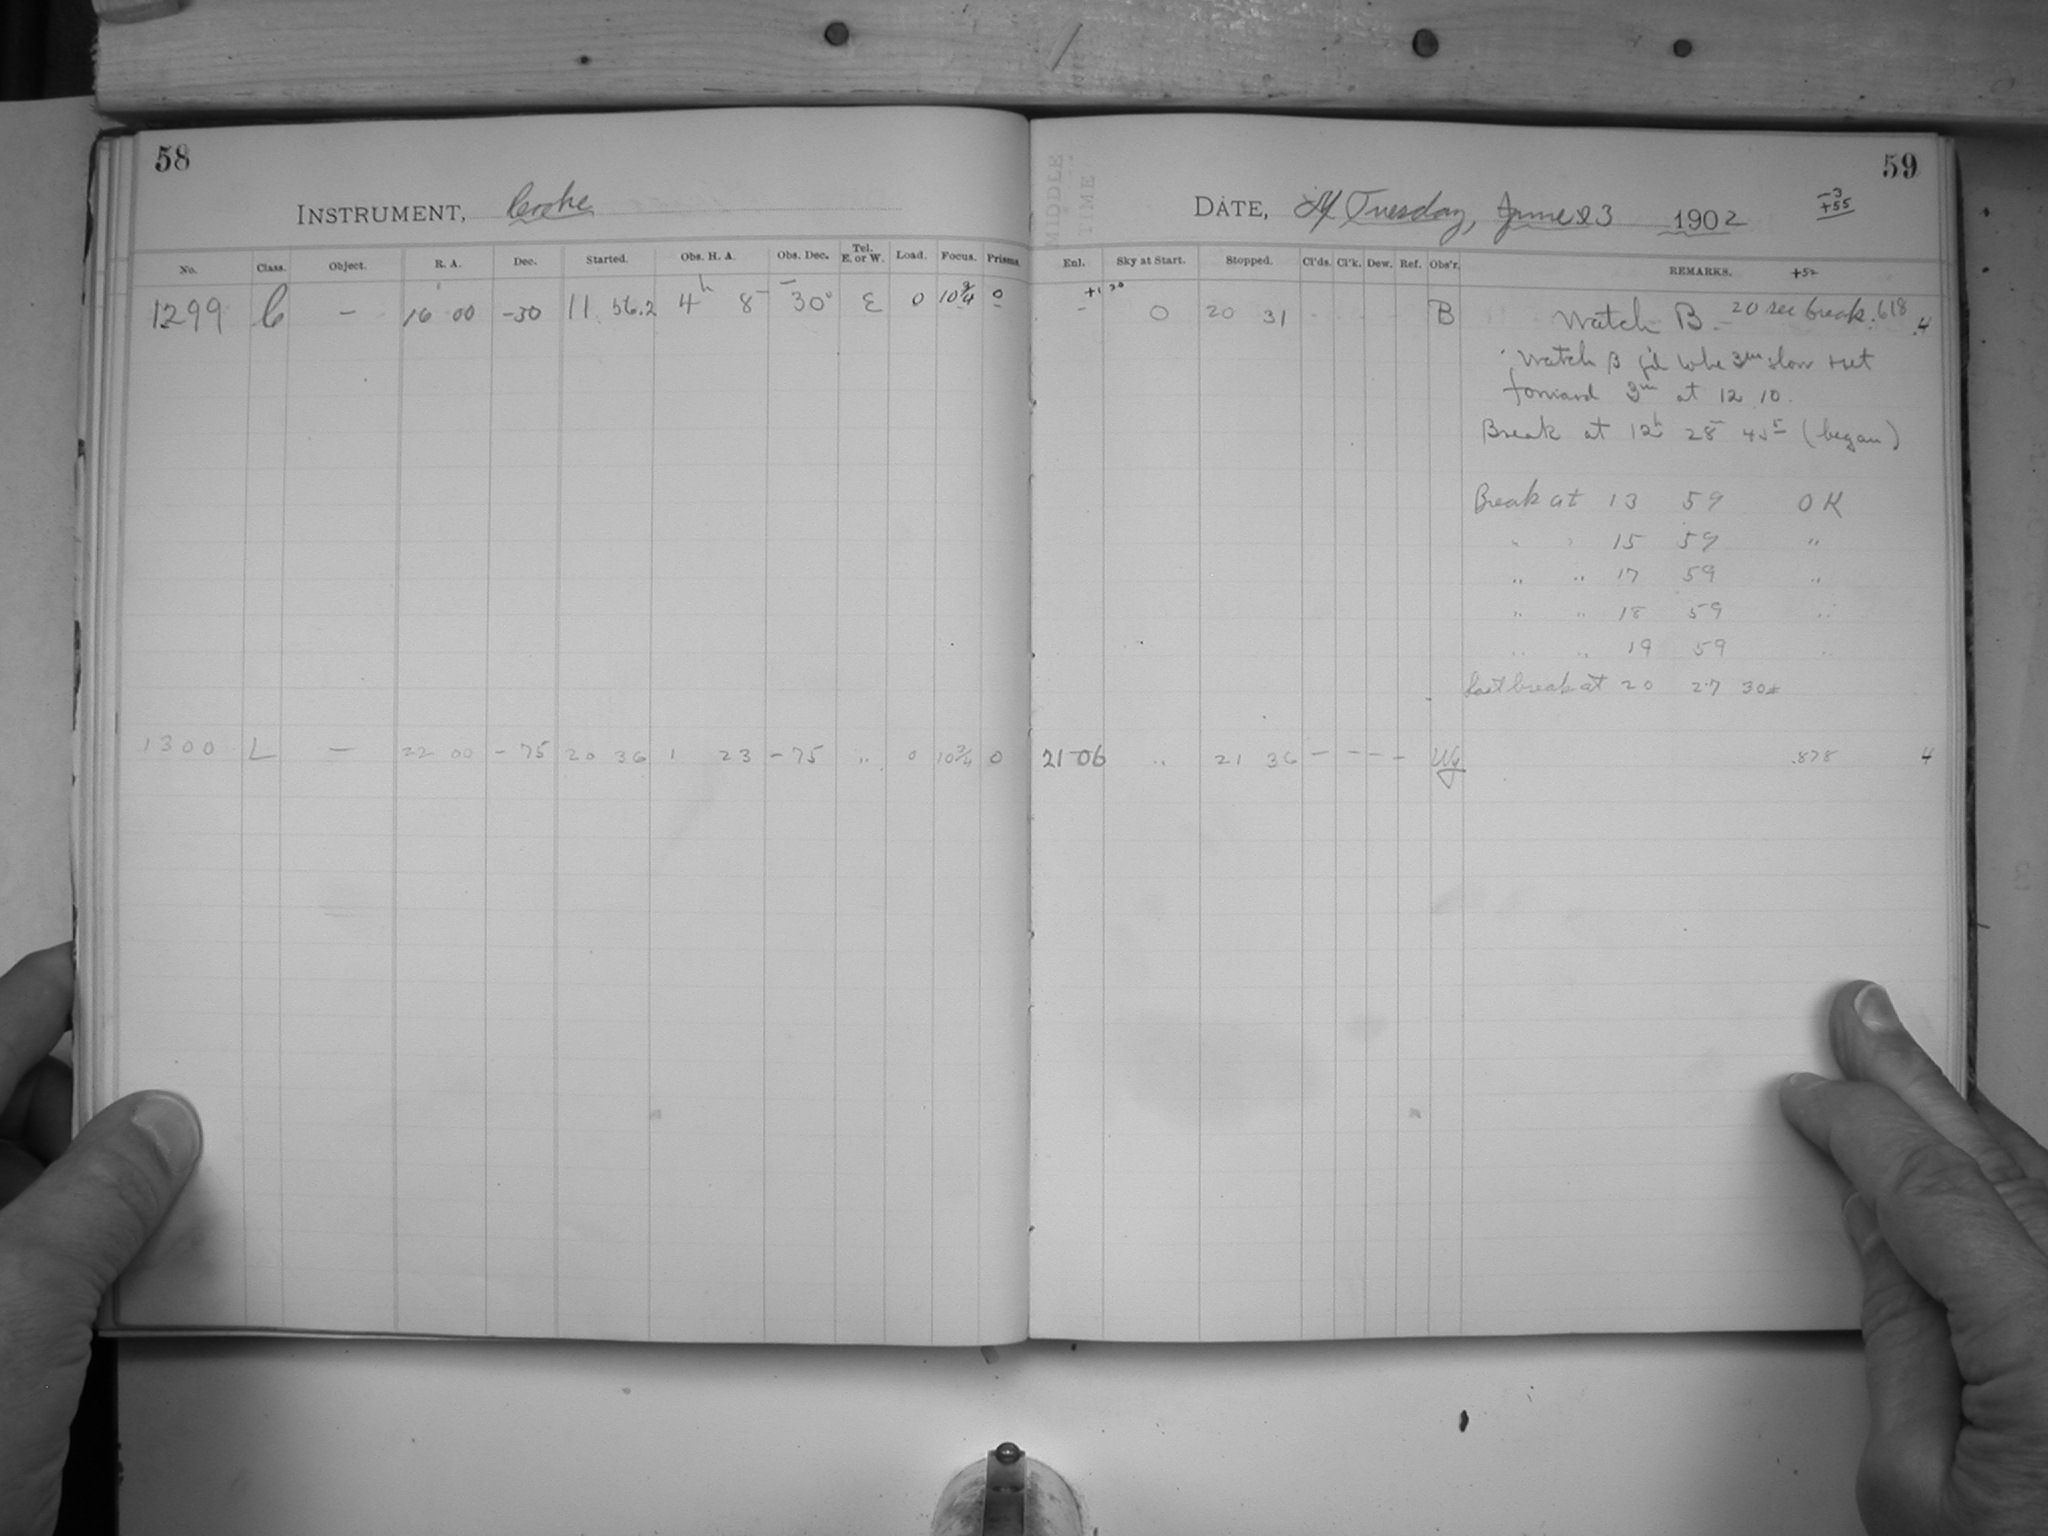 58
INSTRUMENT, Cooke
No. Class. Object. R. A. Dec. Started. Obs. H. A. Obs. Dec. Tel. E. or W. Load. Focus. Prisms.
1299 C — 16 00 -30 11 56.2 4h 8m -30° E 0 10 3/4 0
1300 L — 22 00 -75 20 36 1 23 -75 " 0 10 3/4 0
59
MIDDLE
TIME
DATE, Tuesday, June 23 1902
-3
+55
Enl. Sky at Start. Stopped. Cl'ds. Cl'k. Dew. Ref. Obs'r. REMARKS. +52
- 0 20 31 B Watch B. - 20 sec break .618 .4
Watch B 3m slow + set
forward 3m at 12 10.
Break at 12h 28m 45s (began)
Break at 13 59 OK
" " 15 59 "
" " 17 59 "
" " 18 59 "
" " 19 59 "
Last break at 20 27 30s
21 06 " 21 36 — — — — Wy .878 4